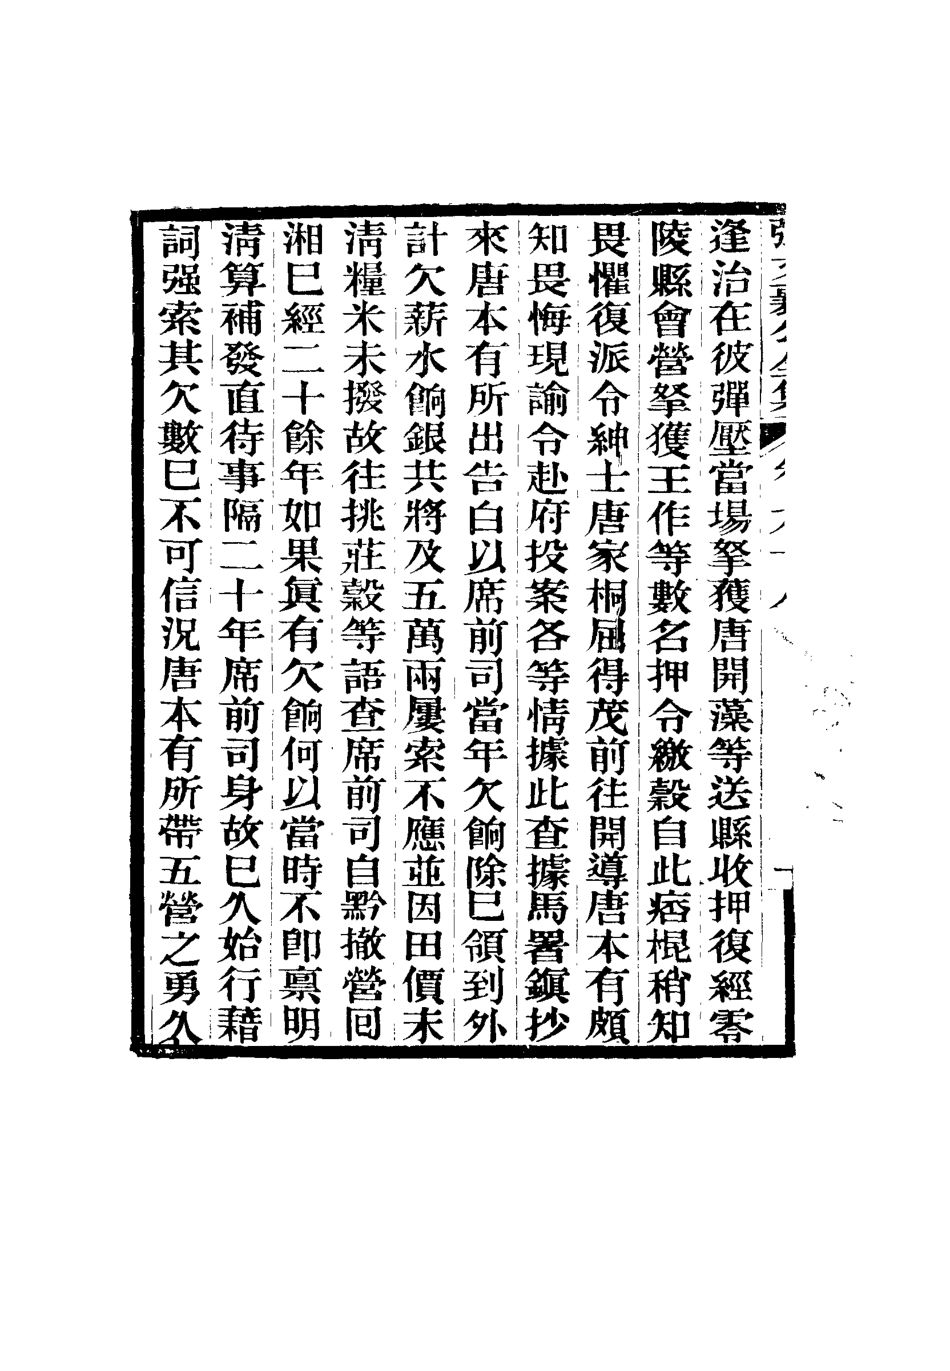 逢治在彼彈壓當場拏獲唐開藻等送縣收押復經零
陵縣會營拏獲王作等數名押令繳穀自此痞棍稍知
畏懼復派令紳士唐家桐屈得茂前往開導唐本有頗
知畏悔現諭令赴府投案各等情據此查據馬署鎭抄
來唐本有所出告白以席前司當年欠餉除巳領到外
計欠薪水餉銀共將及五萬兩屢索不應並因田價未
淸糧米未撥故往挑莊穀等語查席前司自黔撤營囘
湘巳經二十餘年如果眞有欠餉何以當時不卽禀明
淸算補發直待事隔二十年席前司身故巳久始行藉
詞强索其欠數巳不可信況唐本有所帶五營之勇久